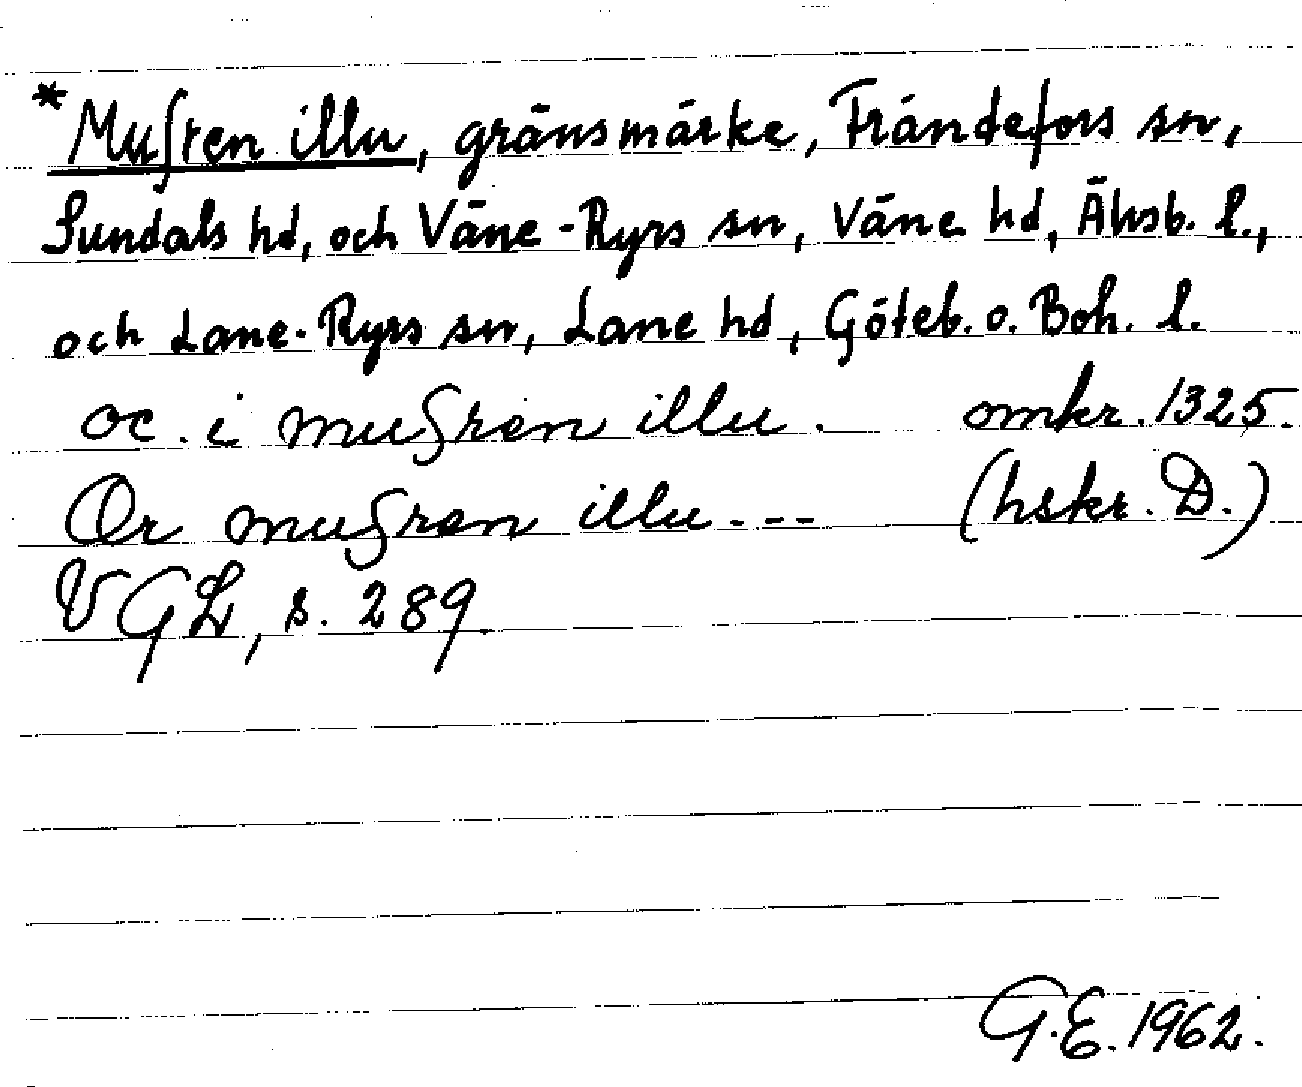 *Musten illu, gränsmärke, Frändefors sn,
Sundals hd, och Väne-Ryrs sn, Väne hd, Älvsb. l.,
och Lane-Ryrs sn, Lane hd, Göteb. o. Boh. l.
oc . i musten illu . omkr. 1325.
Or musten illu - - - (hskr. D.)
VGL, s. 289
G.E. 1962.